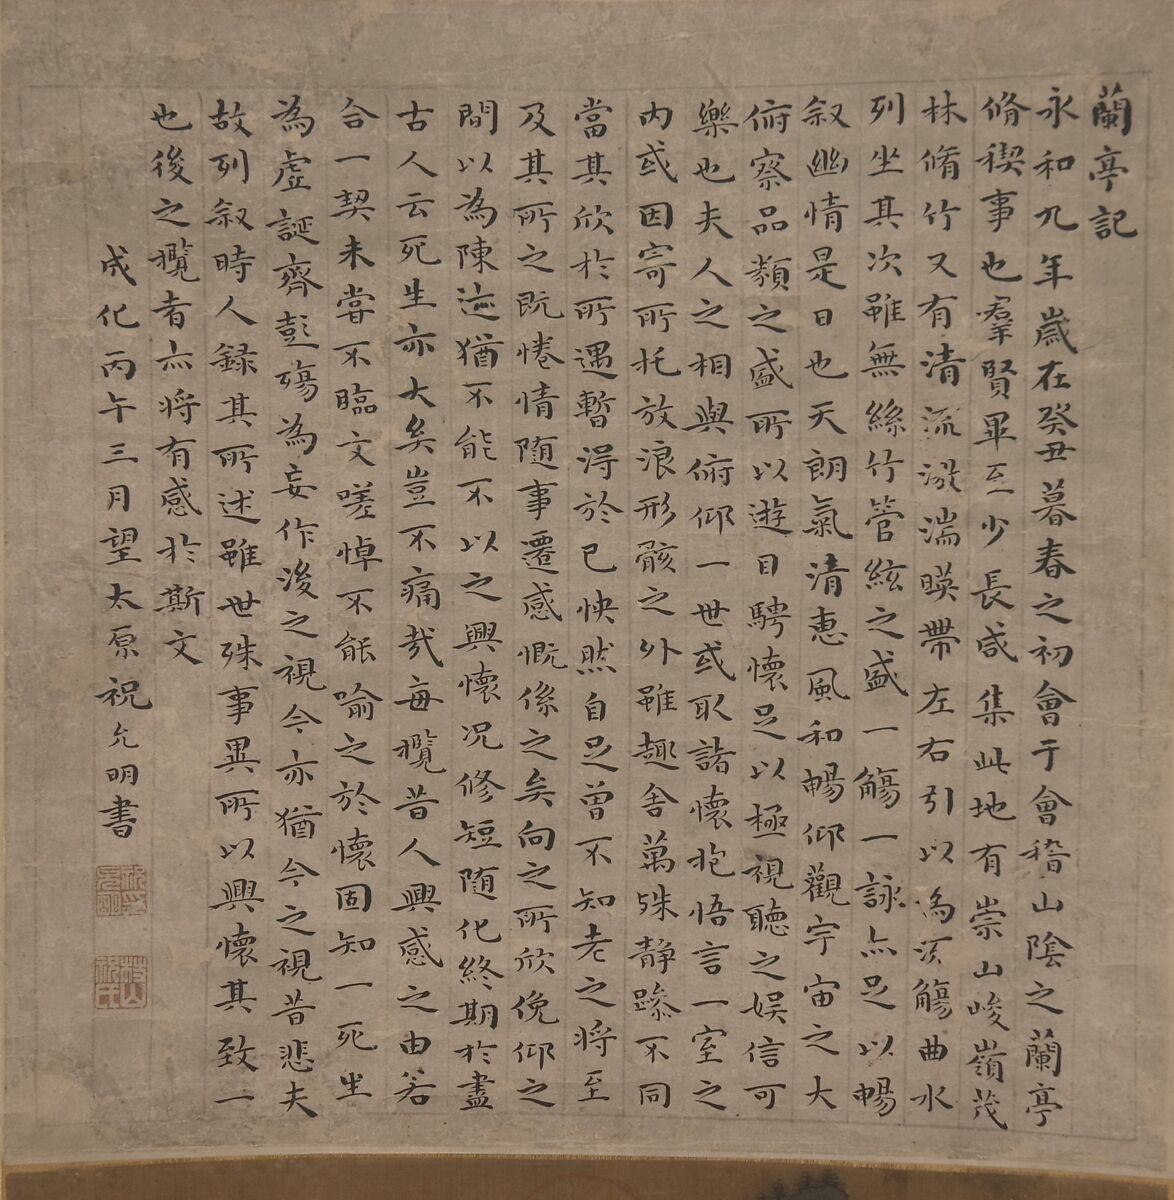 蘭亭記
永和九年歲在癸丑暮春之初會于會稽山陰之蘭亭
脩稧事也羣賢畢至少長咸集此地有崇山峻嶺茂
林脩竹又有清流激湍暎帶左右引以為流觴曲水
列坐其次雖無絲竹管絃之盛一觴一詠亦足以暢
叙幽情是日也天朗氣清惠風和暢仰觀宇宙之大
俯察品類之盛所以遊目騁懷足以極視聽之娛信可
樂也夫人之相與俯仰一世或取諸懷抱悟言一室之
內或因寄所托放浪形骸之外雖趣舍萬殊静躁不同
當其欣於所遇暫得於己怏然自足曾不知老之将至
及其所之既惓情随事遷感慨係之矣向之所欣俛仰之
間以為陳迹猶不能不以之興懷况修短随化終期於盡
古人云死生亦大矣豈不痛哉每攬昔人興感之由若
合一契未嘗不臨文嗟悼不能喻之於懷固知一死生
為虛誕齊彭殤為妄作後之視今亦猶今之視昔悲夫
故列叙時人録其所述雖世殊事異所以興懷其致一
也後之攬者亦将有感於斯文
成化丙午三月望太原祝允明書